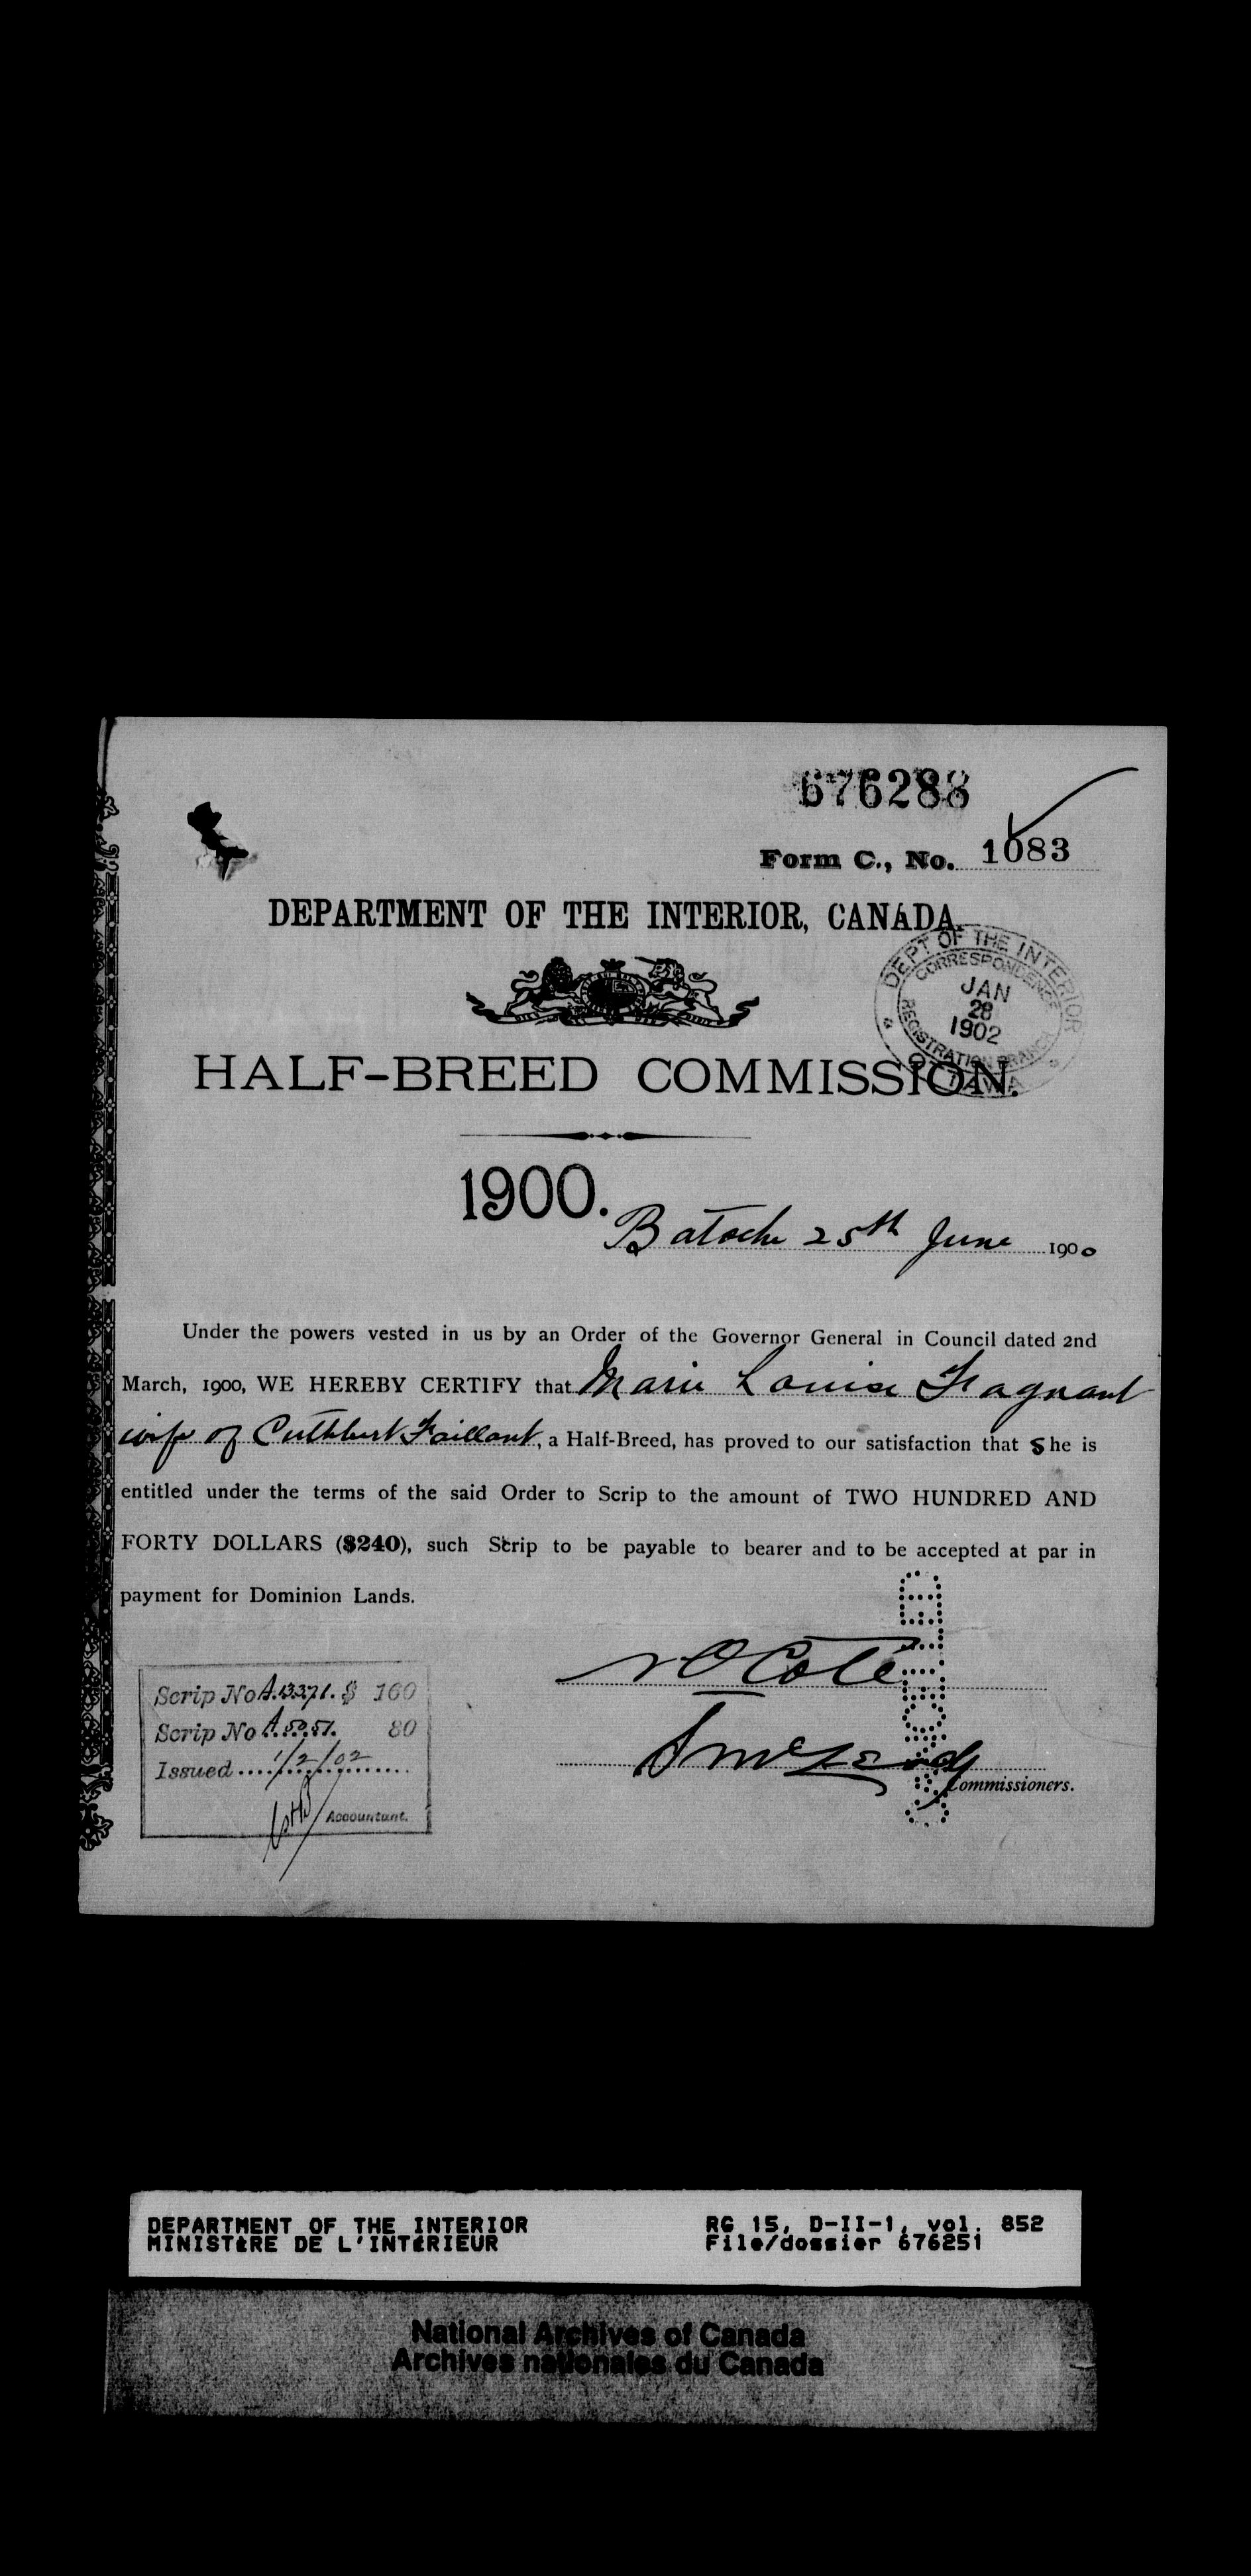 676288
Form C., No. 1083
DEPARTMENT OF THE INTERIOR, CANADA.
DEPT OF THE INTERIOR
CORRESPONDENCE
JAN
28
1902
REGISTRATION BRANCH
OTTAWA
HALF-BREED COMMISSION.
1900.
Batoche 25th June 1900
Under the powers vested in us by an Order of the Governor General in Council dated 2nd
March, 1900, WE HEREBY CERTIFY that Marie Louise Fagnant
wife of Cuthbert Faillant, a Half-Breed, has proved to our satisfaction that She is
entitled under the terms of the said Order to Scrip to the amount of TWO HUNDRED AND
FORTY DOLLARS ($240), such Scrip to be payable to bearer and to be accepted at par in
payment for Dominion Lands.
Scrip No A.13371. $ 160
Scrip No A.5051. 80
Issued 1/2/02
Accountant.
NO Coté
Commissioners.
DEPARTMENT OF THE INTERIOR
MINISTÈRE DE L'INTÉRIEUR
RG 15, D-II-1, vol. 852
File/dossier 676251
National Archives of Canada
Archives nationales du Canada